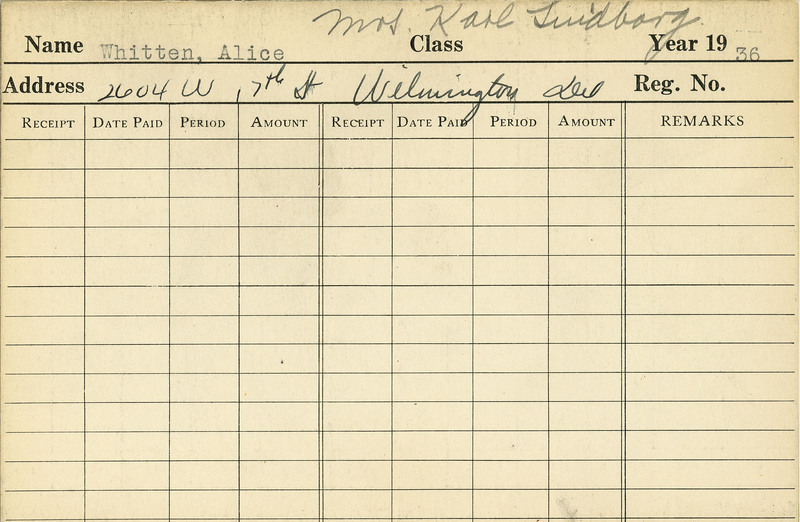 Mrs. Karl Lindborg
Name Whitten, Alice Class Year 19 36
Address 2604 W 17th St Wilmington Del Reg. No.
RECEIPT DATE PAID PERIOD AMOUNT RECEIPT DATE PAID PERIOD AMOUNT REMARKS